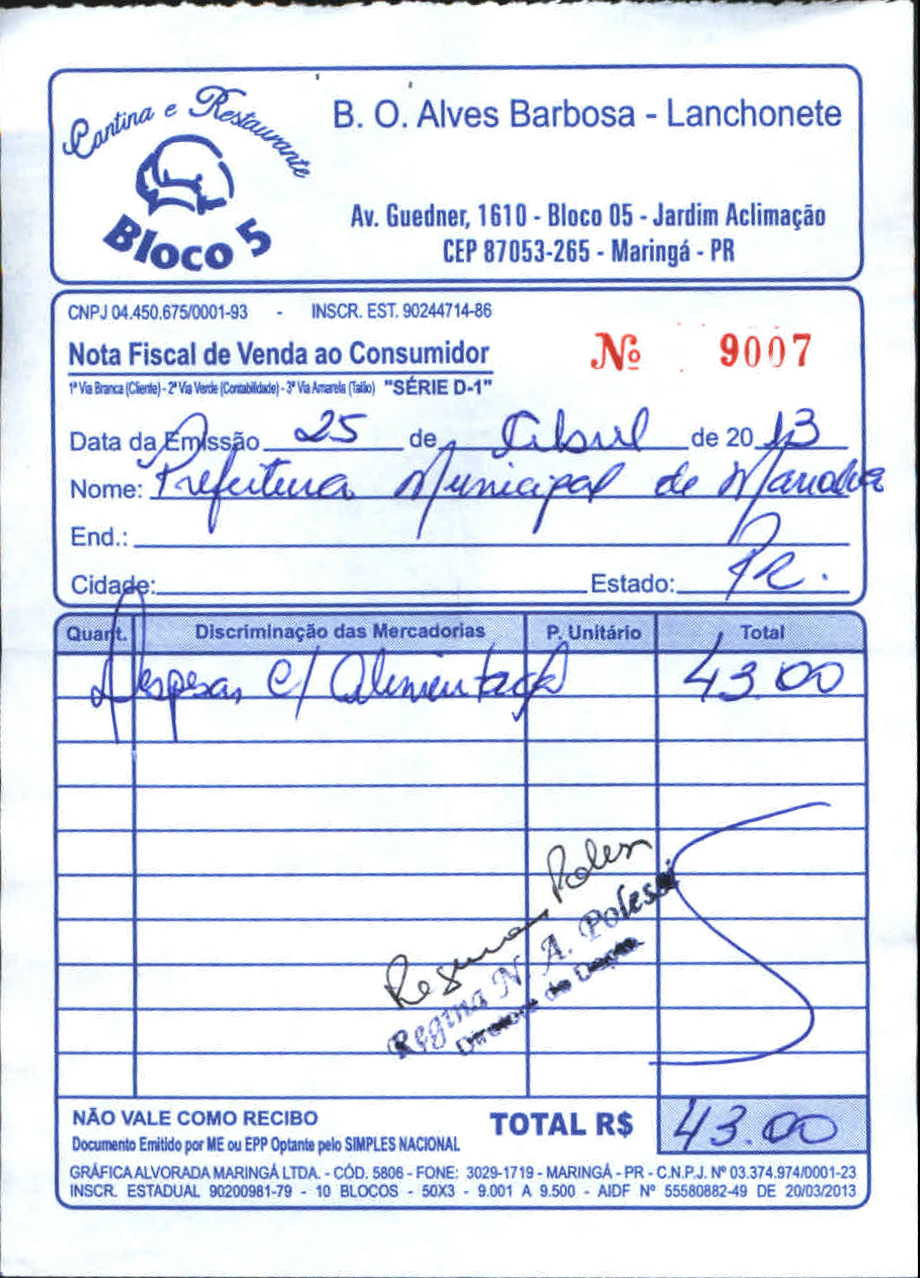 Cantina e Restaurante
Bloco 5
B. O. Alves Barbosa - Lanchonete
Av. Guedner, 1610 - Bloco 05 - Jardim Aclimação
CEP 87053-265 - Maringá - PR
CNPJ 04.450.675/0001-93 - INSCR. EST. 90244714-86
Nota Fiscal de Venda ao Consumidor
Nº 9007
1ª Via Branca (Cliente) - 2ª Via Verde (Contabilidade) - 3ª Via Amarela (Talão) "SÉRIE D-1"
Data da Emissão 25 de Abril de 2013
Nome: Prefeitura Municipal de
End.:
Cidade: Estado: Pr.
Quant. Discriminação das Mercadorias P. Unitário Total
Despesas c/ Alimentação 43.00
Regina N. A. Polessi
NÃO VALE COMO RECIBO
Documento Emitido por ME ou EPP Optante pelo SIMPLES NACIONAL
TOTAL R$ 43.00
GRÁFICA ALVORADA MARINGÁ LTDA. - CÓD. 5806 - FONE: 3029-1719 - MARINGÁ - PR - C.N.P.J. Nº 03.374.974/0001-23
INSCR. ESTADUAL 90200981-79 - 10 BLOCOS - 50X3 - 9.001 A 9.500 - AIDF Nº 55580882-49 DE 20/03/2013